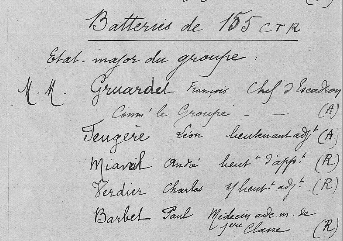 Batteries de 155 C.T.R
Etat-major du groupe :
M.M. Gruardel François Chef d'Escadron
Comm' le Groupe - - (A)
Feugere Léon lieutenant adjt (A)
André lieutt d'appt (R)
Verdier Charles lieutt adjt (R)
Barbet Paul Médecin de
1ère Classe (R)